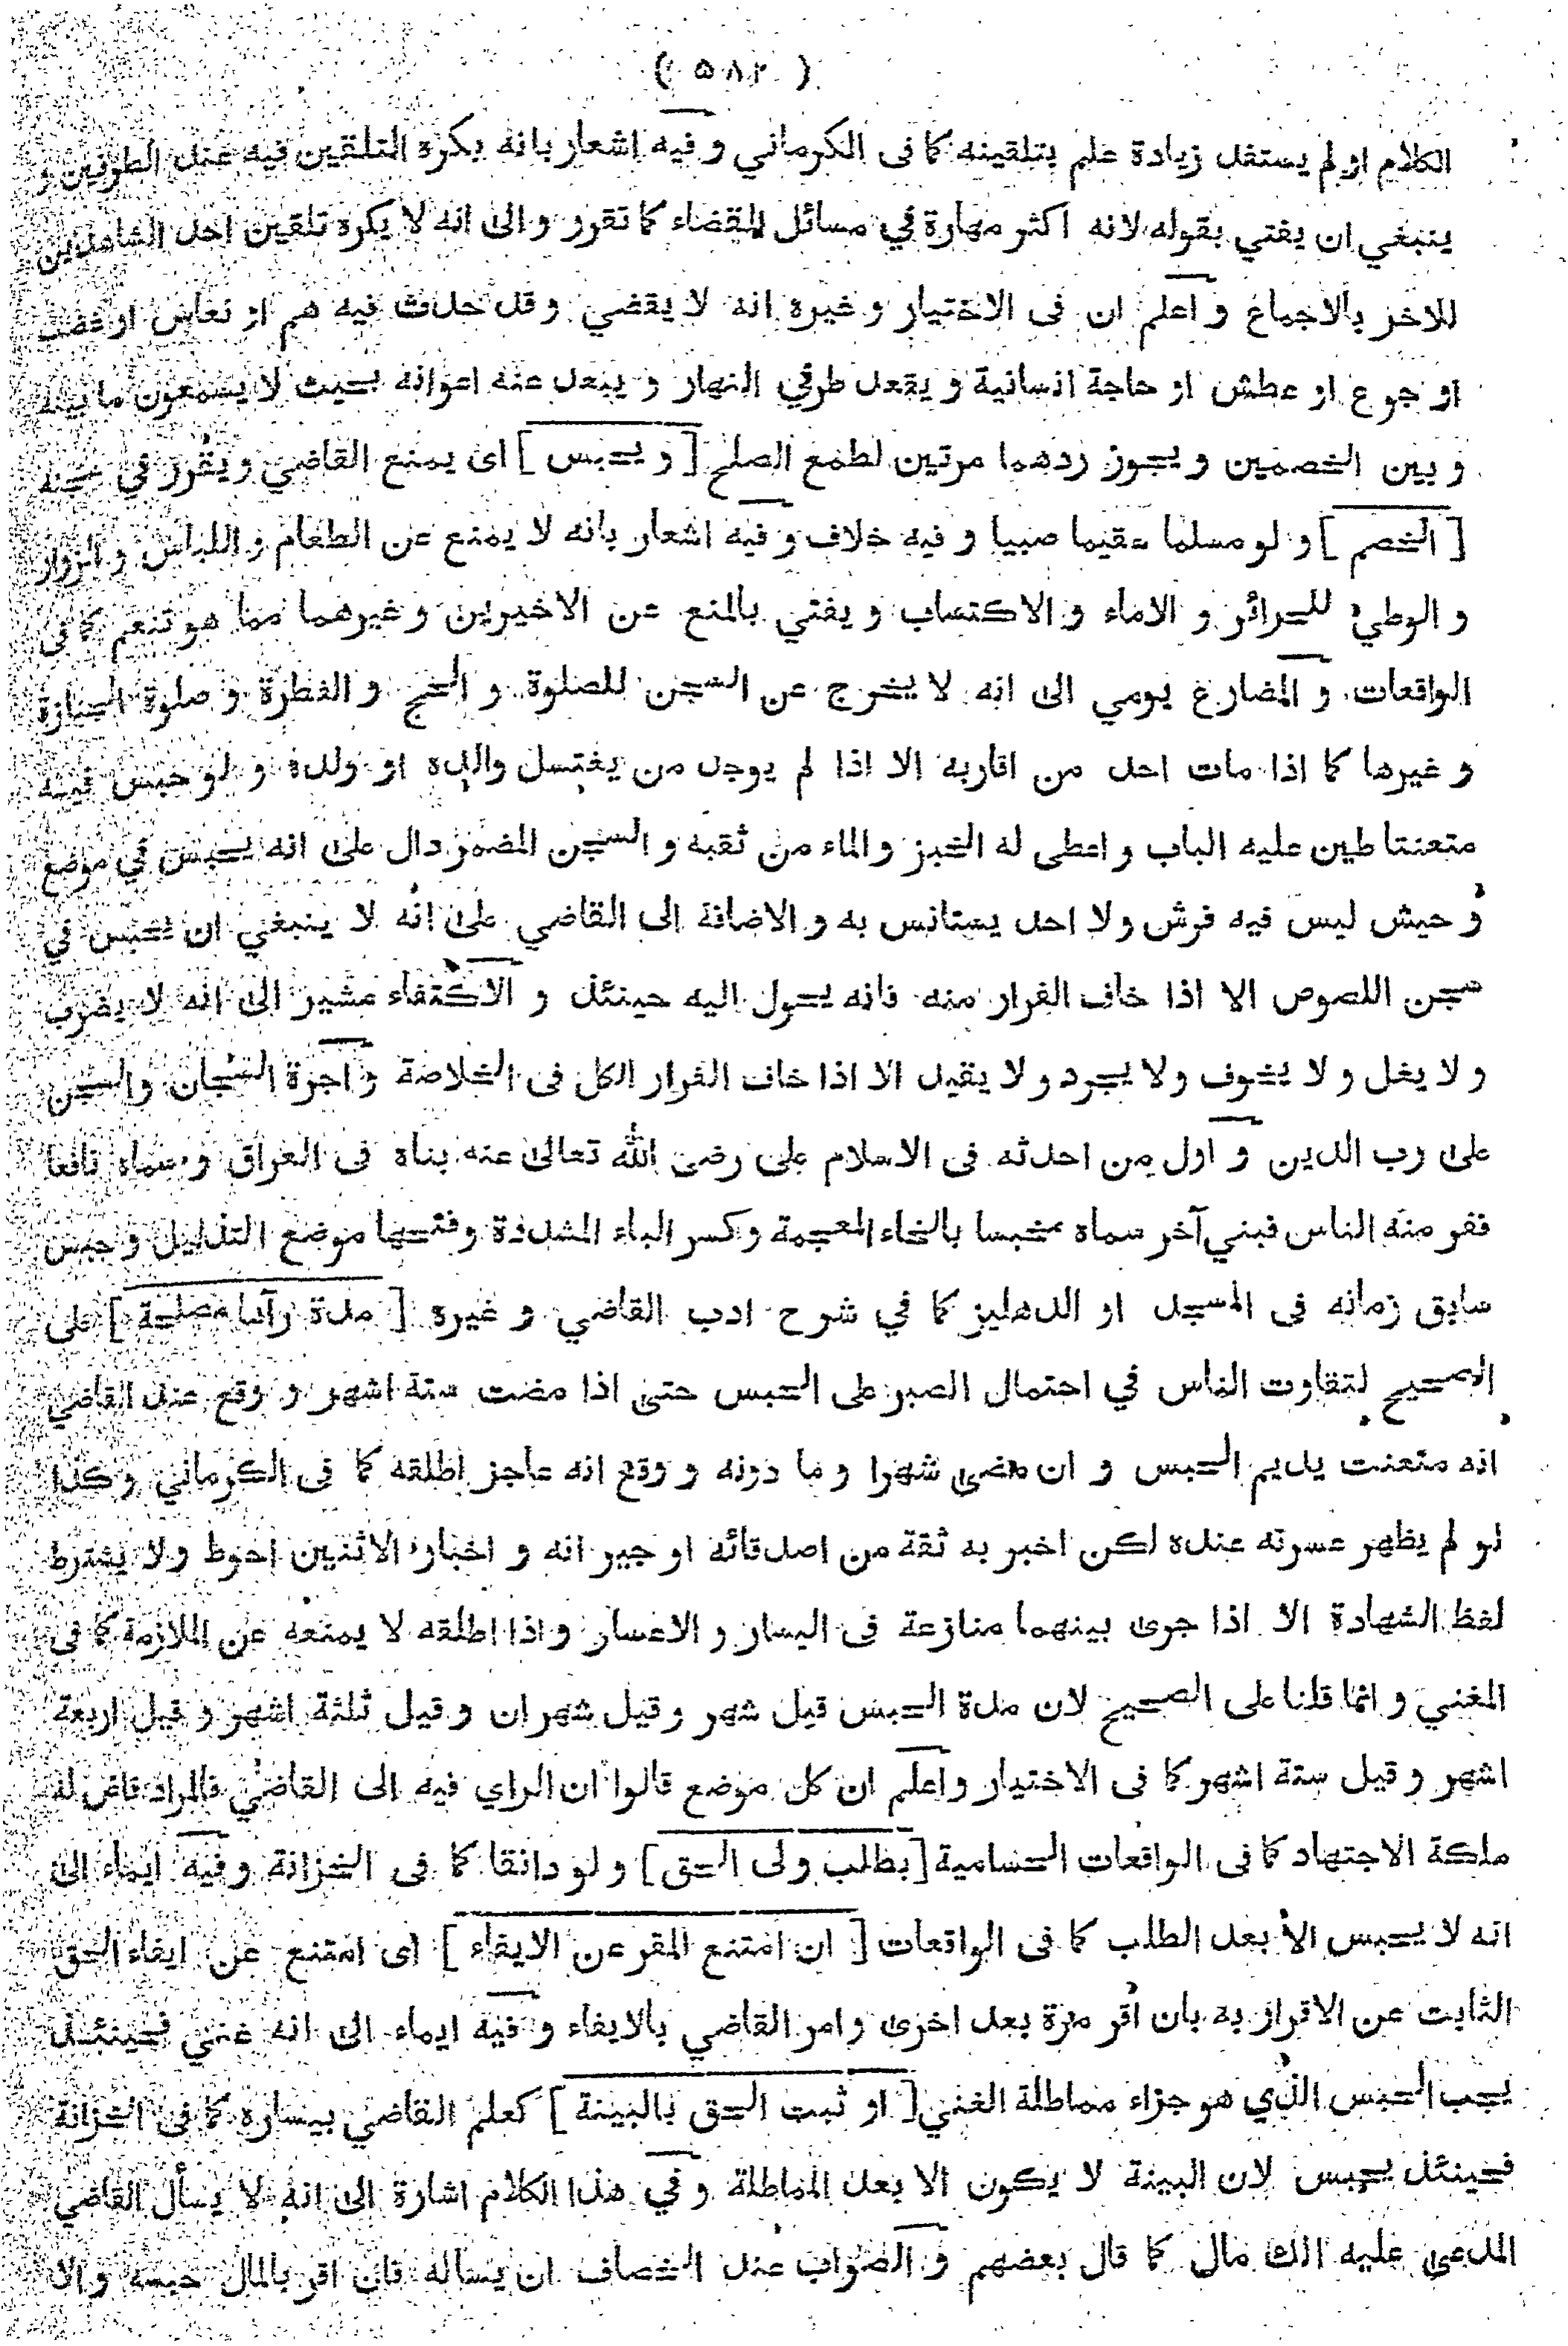 ( ٥٨٢ )
الكلام او لم يستفد زيادة علم بتلقينه كما فى الكرماني و فيه اشعار بانه يكره التلقين فيه عند الطرفين و
ينبغي ان يفتي بقوله لانه اكثر مهارة في مسائل القضاء كما تقرر و الى انه لا يكره تلقين احد الشاهدين
للآخر بالاجماع و اعلم ان فى الاختيار و غيره انه لا يقضي و قد حدث فيه هم او نعاس او غضب
او جوع او عطش او حاجة انسانية و يقعد طرفي النهار و يبعد عنه اعوانه بحيث لا يسمعون ما بينه
و بين الخصمين و يجوز ردهما مرتين لطمع الصلح [ و يحبس ] اى يمنع القاضي و يقرر في سجنه
[ الخصم ] و لو مسلما مقيما صبيا و فيه خلاف و فيه اشعار بانه لا يمنع عن الطعام و اللباس و الزوار
و الوطئ للحرائر و الاماء و الاكتساب و يفتي بالمنع عن الاخيرين و غيرهما مما هو تنعم كما فى
الواقعات و المضارع يومي الى انه لا يخرج عن السجن للصلوة و الحج و الفطرة و صلوة الجنازة
و غيرها كما اذا مات احد من اقاربه الا اذا لم يوجد من يغتسل والده او ولده و لو حبس فيه
متعنتا طين عليه الباب و اعطى له الخبز و الماء من ثقبه و السجن المضمر دال على انه يحبس في موضع
وحيش ليس فيه فرش ولا احد يستانس به و الاضافة الى القاضي على انه لا ينبغي ان يحبس في
سجن اللصوص الا اذا خاف الفرار منه فانه يحول اليه حينئذ و الاكتفاء مشير الى انه لا يضرب
و لا يغل و لا يخوف ولا يجرد و لا يقيد الا اذا خاف الفرار الكل فى الخلاصة و اجرة السجان والسجن
على رب الدين و اول من احدثه فى الاسلام على رضى الله تعالى عنه بناه فى العراق و سماه نافعا
ففر منه الناس فبنى آخر سماه مخبسا بالخاء المعجمة و كسر الباء المشددة وفتحها موضع التذليل و حبس
سابق زمانه فى المسجد او الدهليز كما في شرح ادب القاضي و غيره [ مدة رآها مصلحة ] على
الصحيح لتفاوت الناس في احتمال الصبر على الحبس حتى اذا مضت ستة اشهر و وقع عند القاضي
انه متعنت يديم الحبس و ان مضى شهرا و ما دونه و وقع انه عاجز اطلقه كما فى الكرماني و كذا
لو لم يظهر عسرته عنده لكن اخبر به ثقة من اصدقائه او جيرانه و اخبار الاثنين احوط ولا يشترط
لفظ الشهادة الا اذا جرى بينهما منازعة فى اليسار و الاعسار و اذا اطلقه لا يمنعه عن الملازمة كما فى
المغني و انما قلنا على الصحيح لان مدة الحبس قيل شهر و قيل شهران و قيل ثلثة اشهر و قيل اربعة
اشهر و قيل ستة اشهر كما فى الاختيار و اعلم ان كل موضع قالوا ان الراي فيه الى القاضي فالمراد قاض له
ملكة الاجتهاد كما فى الواقعات الحسامية [ بطلب ولى الحق ] و لو دانقا كما فى الخزانة و فيه ايماء الى
انه لا يحبس الا بعد الطلب كما فى الواقعات [ ان امتنع المقر عن الايفاء ] اى امتنع عن ايفاء الحق
الثابت عن الاقرار به بان اقر مرة بعد اخرى و امر القاضي بالايفاء و فيه ايماء الى انه غني فحينئذ
يجب الحبس الذي هو جزاء مماطلة الغني [ او ثبت الحق بالبينة ] كعلم القاضي بيساره كما فى الخزانة
فحينئذ يحبس لان البينة لا يكون الا بعد المماطلة و في هذا الكلام اشارة الى انه لا يسأل القاضي
المدعى عليه الك مال كما قال بعضهم و الصواب عند الخصاف ان يسأله فان اقر بالمال حبسه و الا